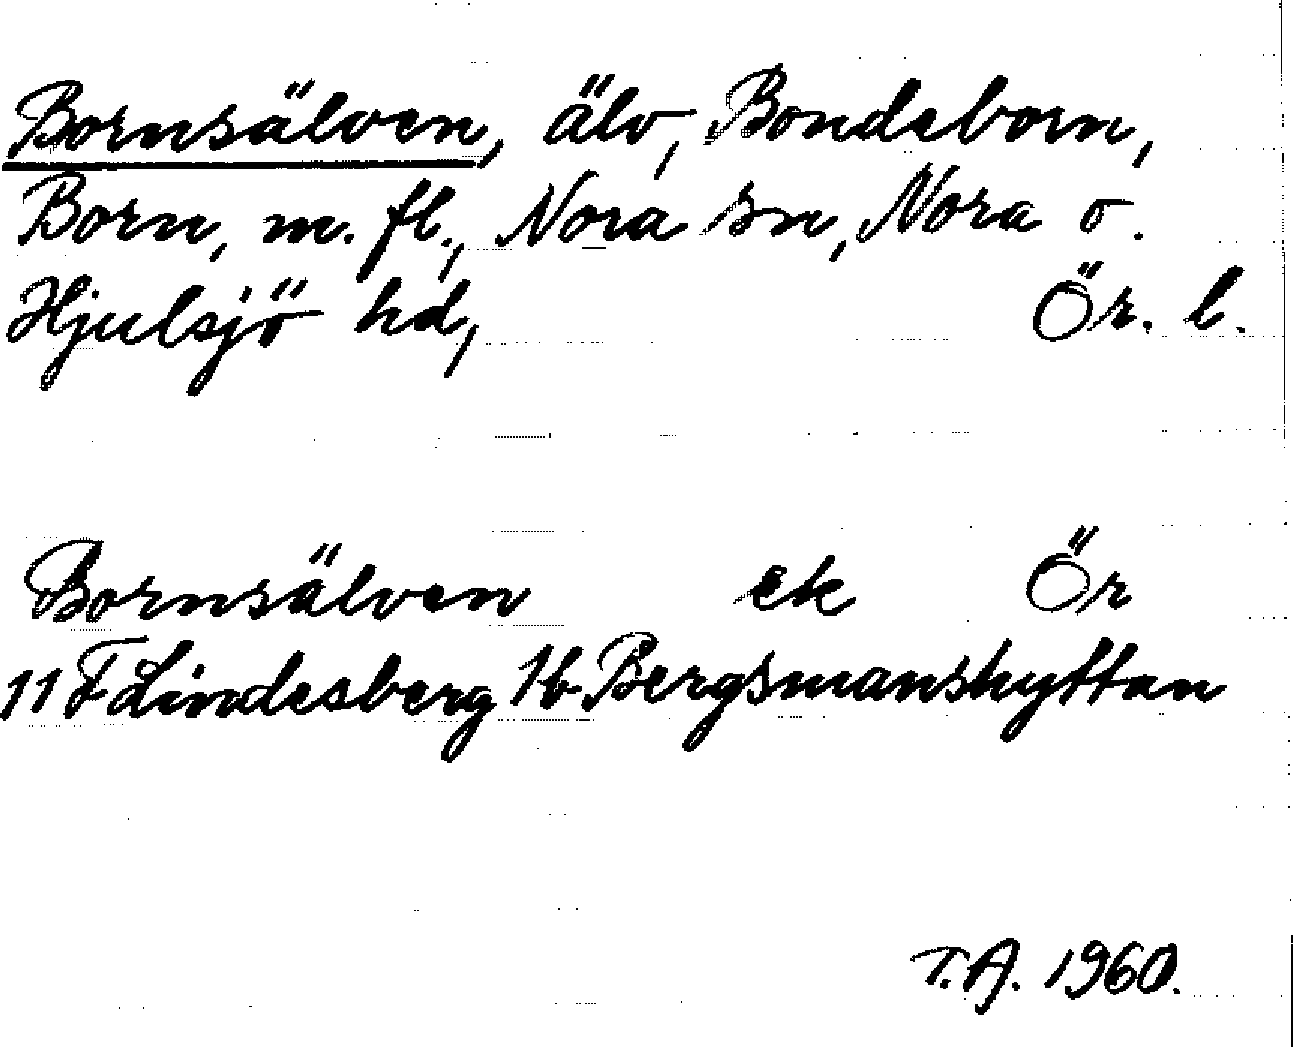 Bornsälven, älv, Bondeborn,
Born, m. fl., Nora sn, Nora o.
Hjulsjö hd, Ör. l.
Bornsälven ek Ör
11F Lindesberg 1b Bergsmanshyttan
T.A. 1960.